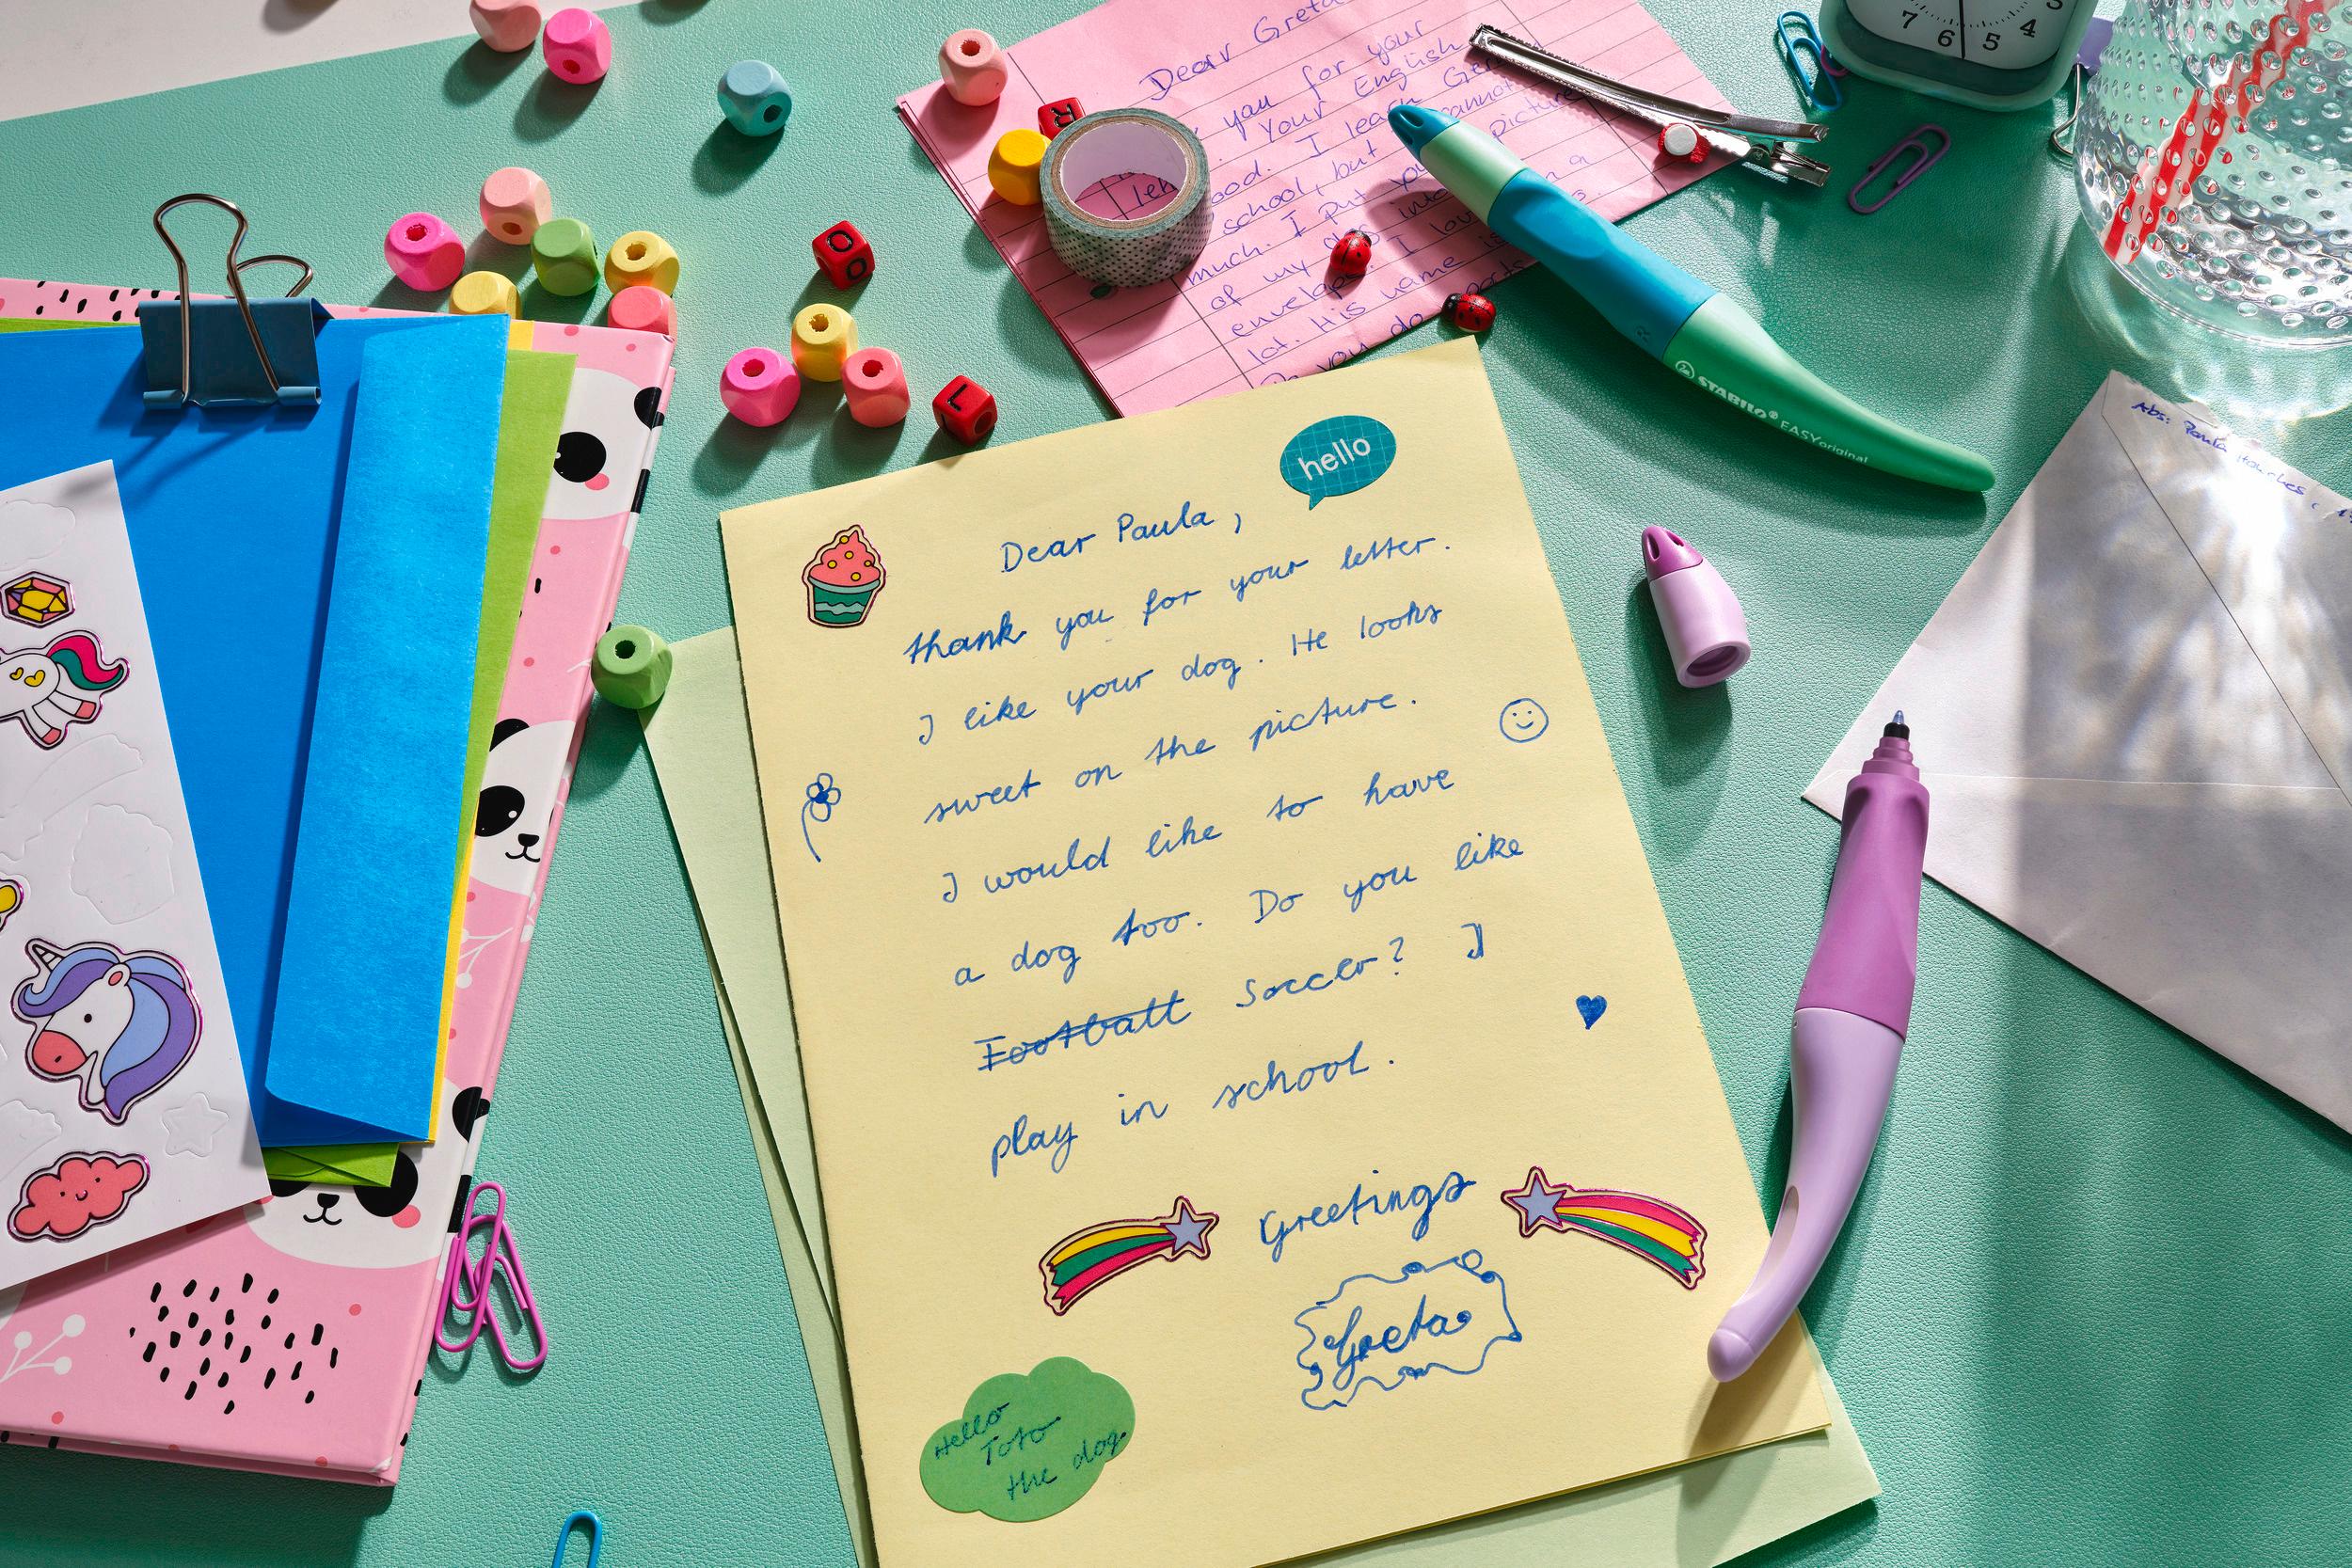 7 6 5 4
R
O
O
L
Dear Greta
you for your
Your English
ood. I learn Ger
school, but cannot
much. I put picture
of my dog into
envelope. I lov
lot. His name is
you do
STABILO® EASYoriginal
Abs: Paula
hello
Dear Paula,
thank you for your letter.
I like your dog. He looks
sweet on the picture.
I would like to have
a dog too. Do you like
Football Soccer? I
play in school.
Greetings
Greta
Hello
Toto
the dog